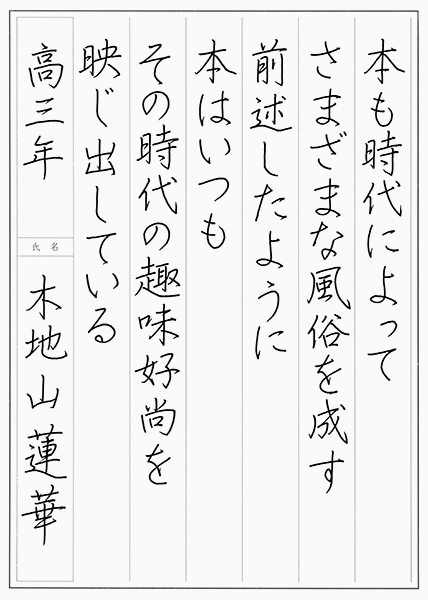 本も時代によって
さまざまな風俗を成す
前述したように
本はいつも
その時代の趣味好尚を
映じ出している
高三年
氏名
木地山蓮華